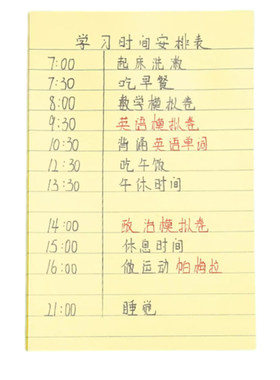 学习时间安排表
7:00 起床洗漱
7:30 吃早餐
8:00 数学模拟卷
9:30 英语模拟卷
10:30 背诵英语单词
12:30 吃午饭
13:30 午休时间
14:00 政治模拟卷
15:00 休息时间
16:00 做运动帕梅拉
21:00 睡觉